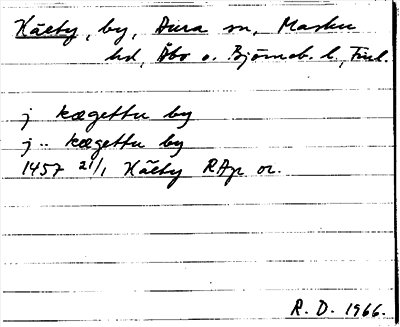 Käety, by, Aura sn, Masku
hd, Åbo o. Björneb. l., Finl.
j kægettu by
j .. kægettu by
1457 21/1 Käety RAp or.
R. D. 1966.